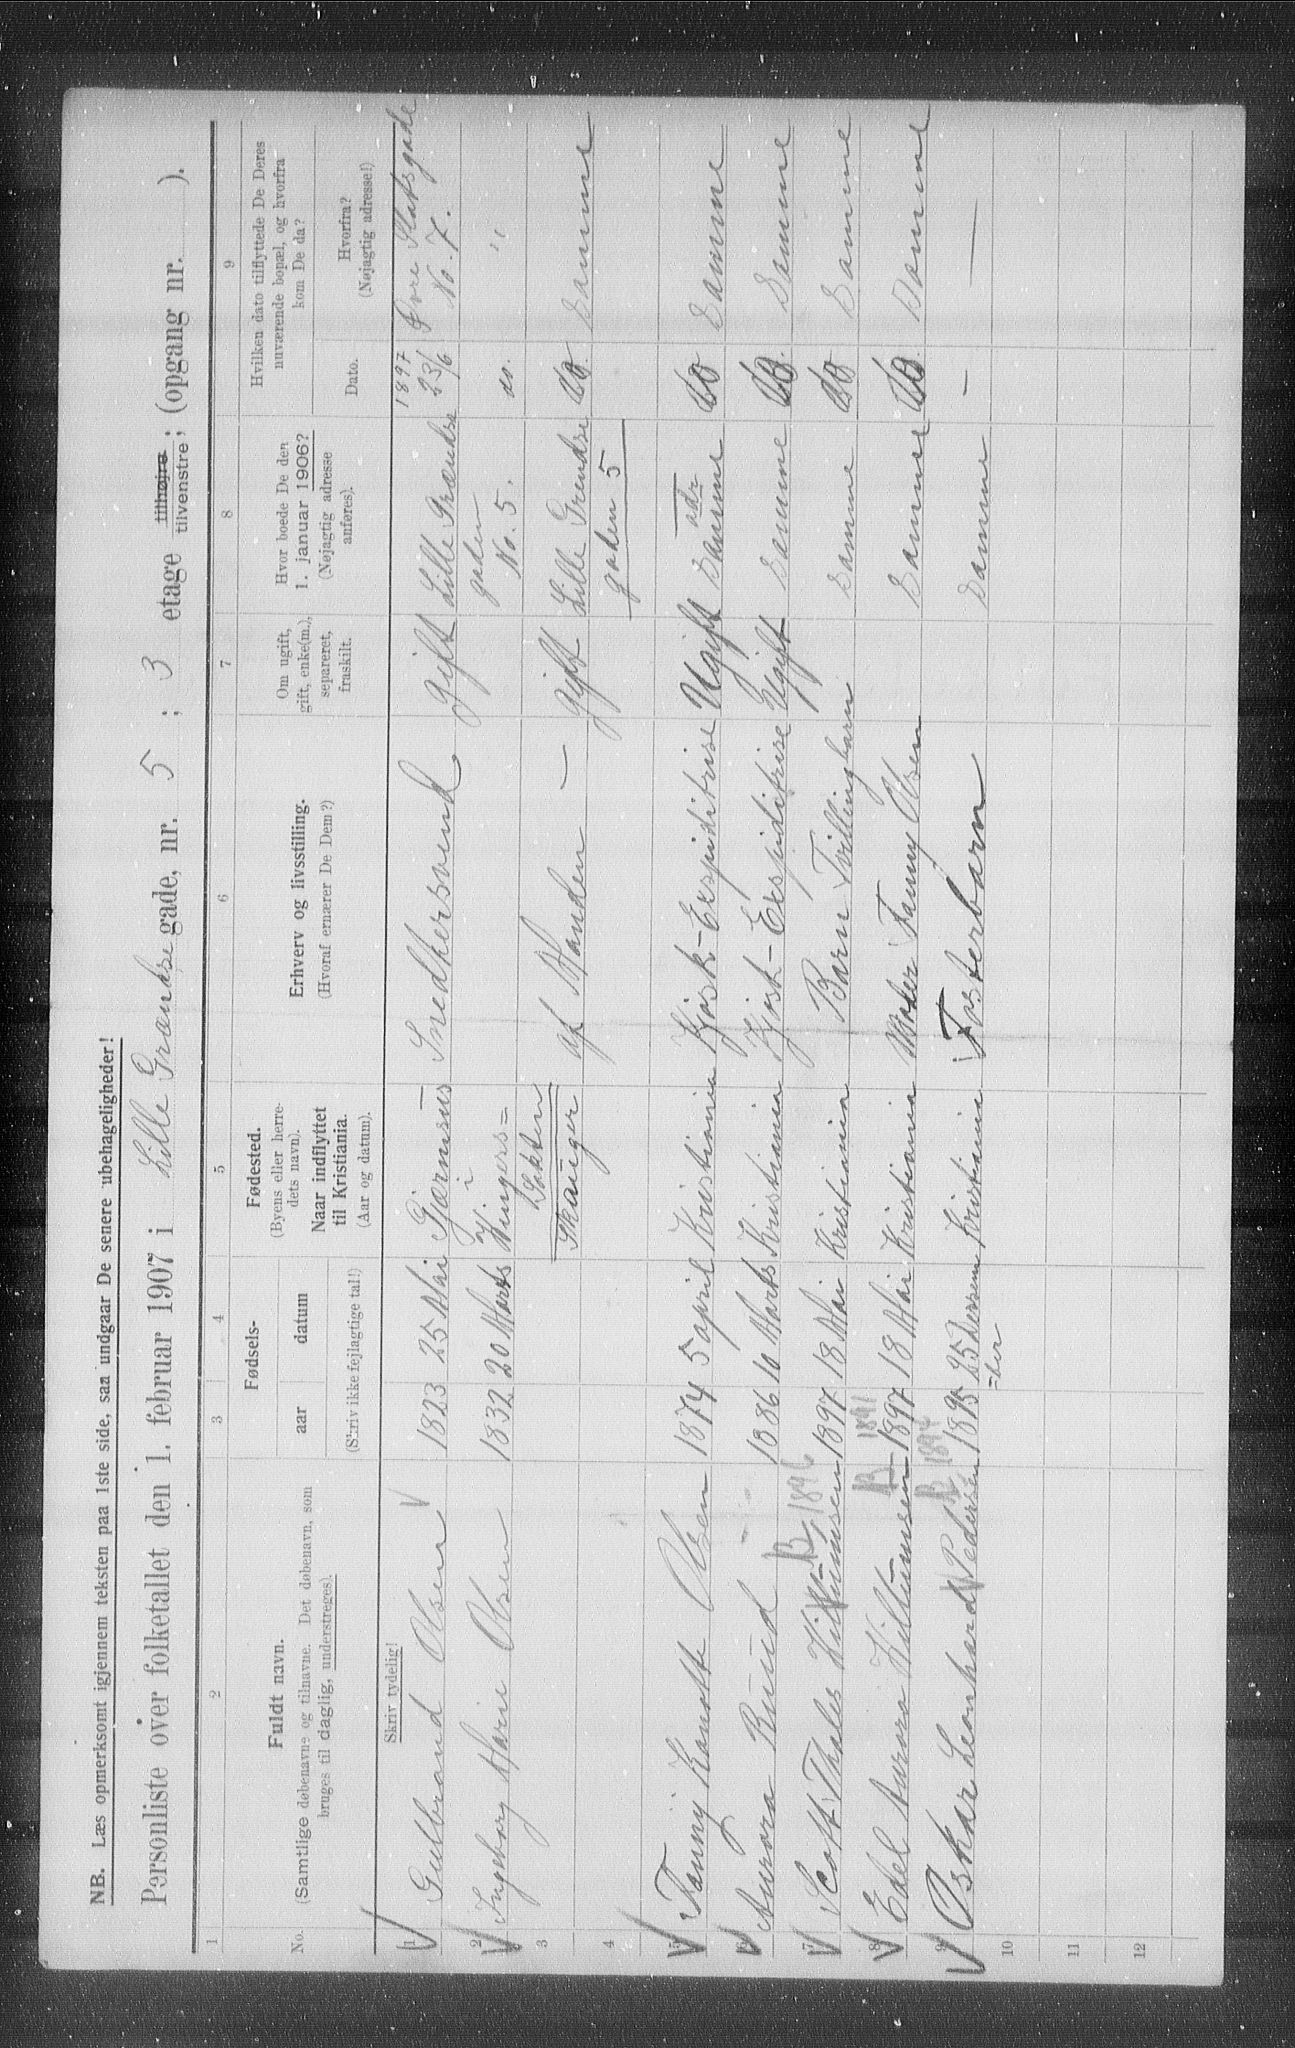 NB. Læs opmerksomt igjennem teksten paa 1ste side, saa undgaar De senere ubehageligheder!
Personliste over folketallet den 1. februar 1907 i Lille Grændse gade, nr. 5 ; 3 etage tilhøjre tilvenstre ; (opgang nr. ).
1 2 3 4 5 6 7 8 9
No.
Fuldt navn.
(Samtlige døbenavne og tilnavne. Det døbenavn, som
bruges til daglig, understreges).
Fødsels-
aar datum
(Skriv ikke fejlagtige tal!)
Fødested.
(Byens eller herre-
dets navn).
Naar indflyttet
til Kristiania.
(Aar og datum).
Erhverv og livsstilling.
(Hvoraf ernærer De Dem?)
Om ugift,
gift, enke(m.),
separeret,
fraskilt.
Hvor boede De den
1. januar 1906?
(Nøjagtig adresse
anføres).
Hvilken dato tilflyttede De Deres
nuværende bopæl, og hvorfra
kom De da?
Dato.
Hvorfra?
(Nøjagtig adresse!)
Skriv tydelig!
1 Gulbrand Olsen 1823 25 Mai Snedkersvend gift Lille Grændse 1897 23/6 Øvre Slotsgade
gaden No. 7.
2 Ingeborg Marie Olsen 1832 20 Marts Vingers= No. 5. do. "
3 Skauger af Manden — gift Lille Grendse do Samme
4 gaden 5
5 Fanny Olsen 1874 5 april Kristiania Kjosk-Ekspiditrise Ugift Samme adr do Samme
6 Aurora Ruud 1886 10 Marts Kristiania Kjosk-Ekspiditrise Ugift Samme do. Samme
7 Scott Thales 1897 1896 18 Mai Kristiania Barn Tvillingbarn Samme do Samme
8 Edel Aurora 1897 18 Mai Kristiania Moder Fanny Olsen Samme do. Samme
9 Oskar Leonhard Pedersen 1895 1894 25 Dessem Kristiania Fosterbarn Samme — —
=ber
10
11
12